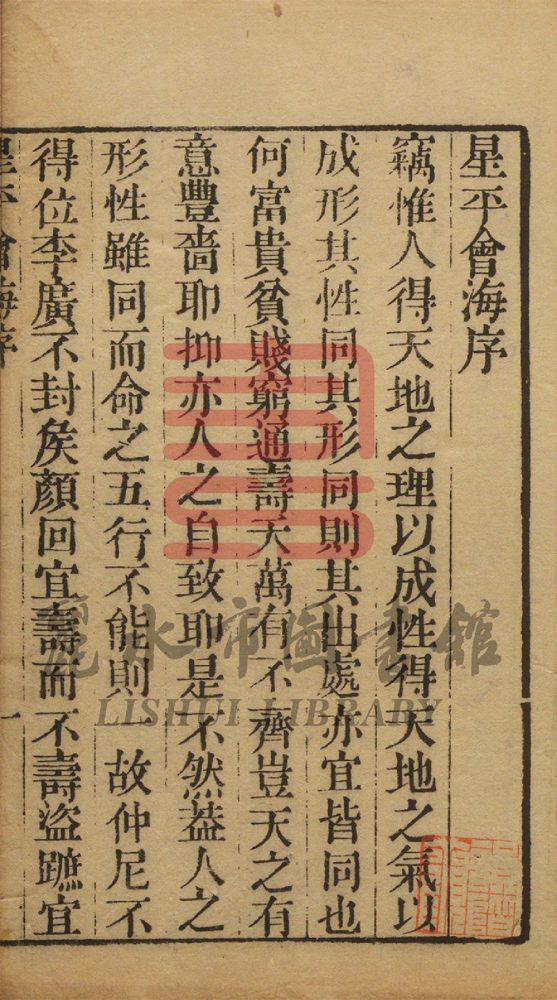 星平會海序
竊惟人得天地之理以成性得天地之氣以
成形其性同其形同則其出處亦宜皆同也
何富貴貧賤窮通壽夭萬有不齊豈天之有
意豐嗇耶抑亦人之自致耶是不然葢人之
形性雖同而命之五行不能則一故仲尼不
得位李廣不封矦顏回宜壽而不壽盜蹠宜
星平會海序
一
麗水市圖書館
LISHUI LIBRARY